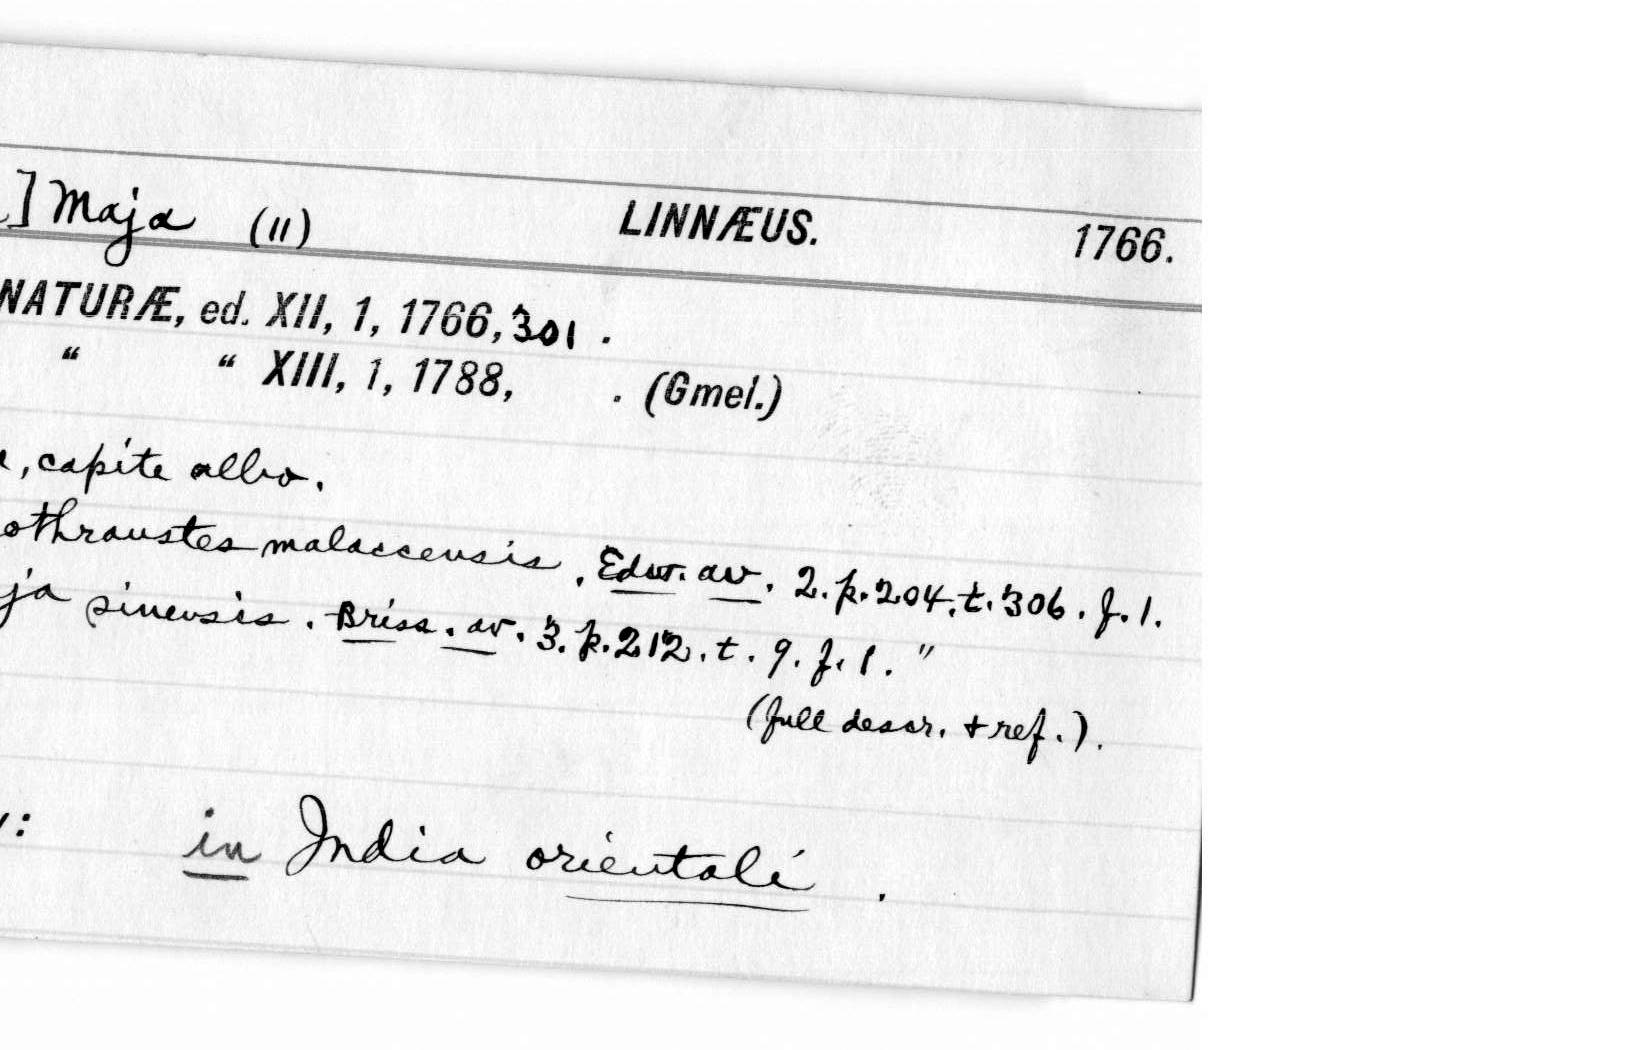 ] Maja (11) LINNÆUS. 1766.
NATURÆ, ed. XII, 1, 1766, 301.
“ “ XIII, 1, 1788, . (Gmel.)
, capite albo.
othraustes malaccensis. Edw. av. 2. p. 204. t. 306. f. 1.
ja sinensis. Briss. av. 3. p. 212. t. 9. f. 1. "
(full descr. + ref.).
: in India orientali.